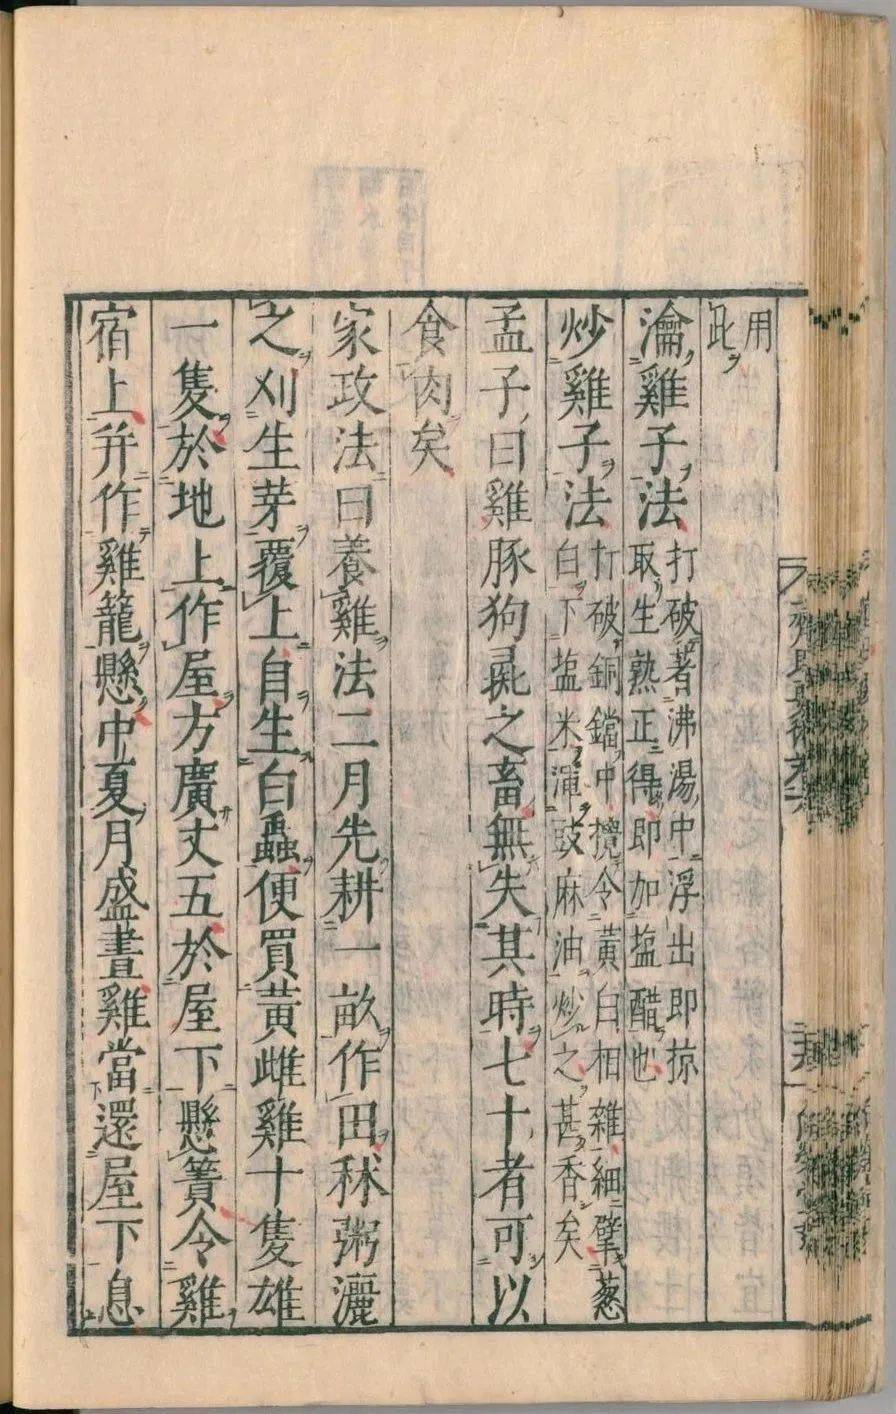 用
此
瀹雞子法
打破著沸湯中浮出即掠
取生熟正得即加塩醋也
炒雞子法
打破銅鐺中攪令黃白相雜細擘葱
白下塩米渾豉麻油炒之甚香矣
孟子曰雞豚狗彘之畜無失其時七十者可以
食肉矣
家政法曰養雞法二月先耕一畝作田秫粥灑
之刈生芽覆上自生白蟲便買黃雌雞十隻雄
一隻於地上作屋方廣丈五於屋下懸簀令雞
宿上并作雞籠懸中夏月盛晝雞當還屋下息